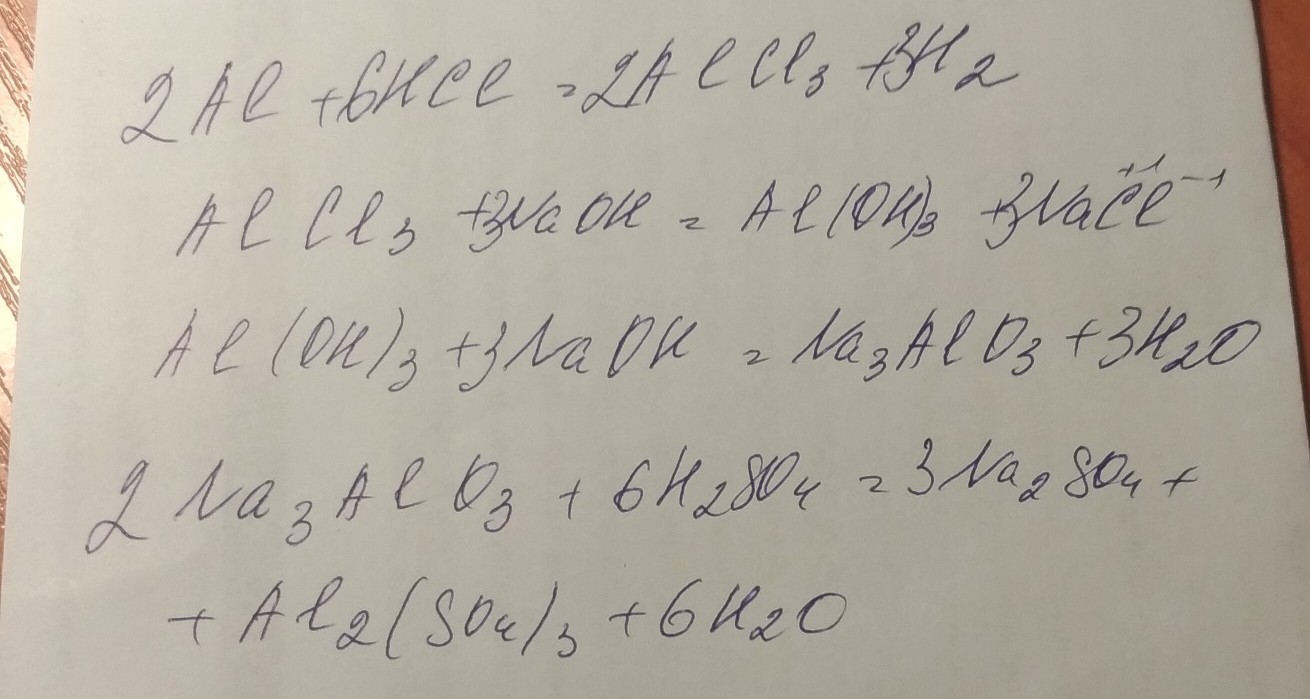 2Al + 6HCl = 2AlCl₃ + 3H₂
AlCl₃ + 3NaOH = Al(OH)₃ + 3Na⁺¹Cl⁻¹
Al(OH)₃ + 3NaOH = Na₃AlO₃ + 3H₂O
2Na₃AlO₃ + 6H₂SO₄ = 3Na₂SO₄ +
+ Al₂(SO₄)₃ + 6H₂O